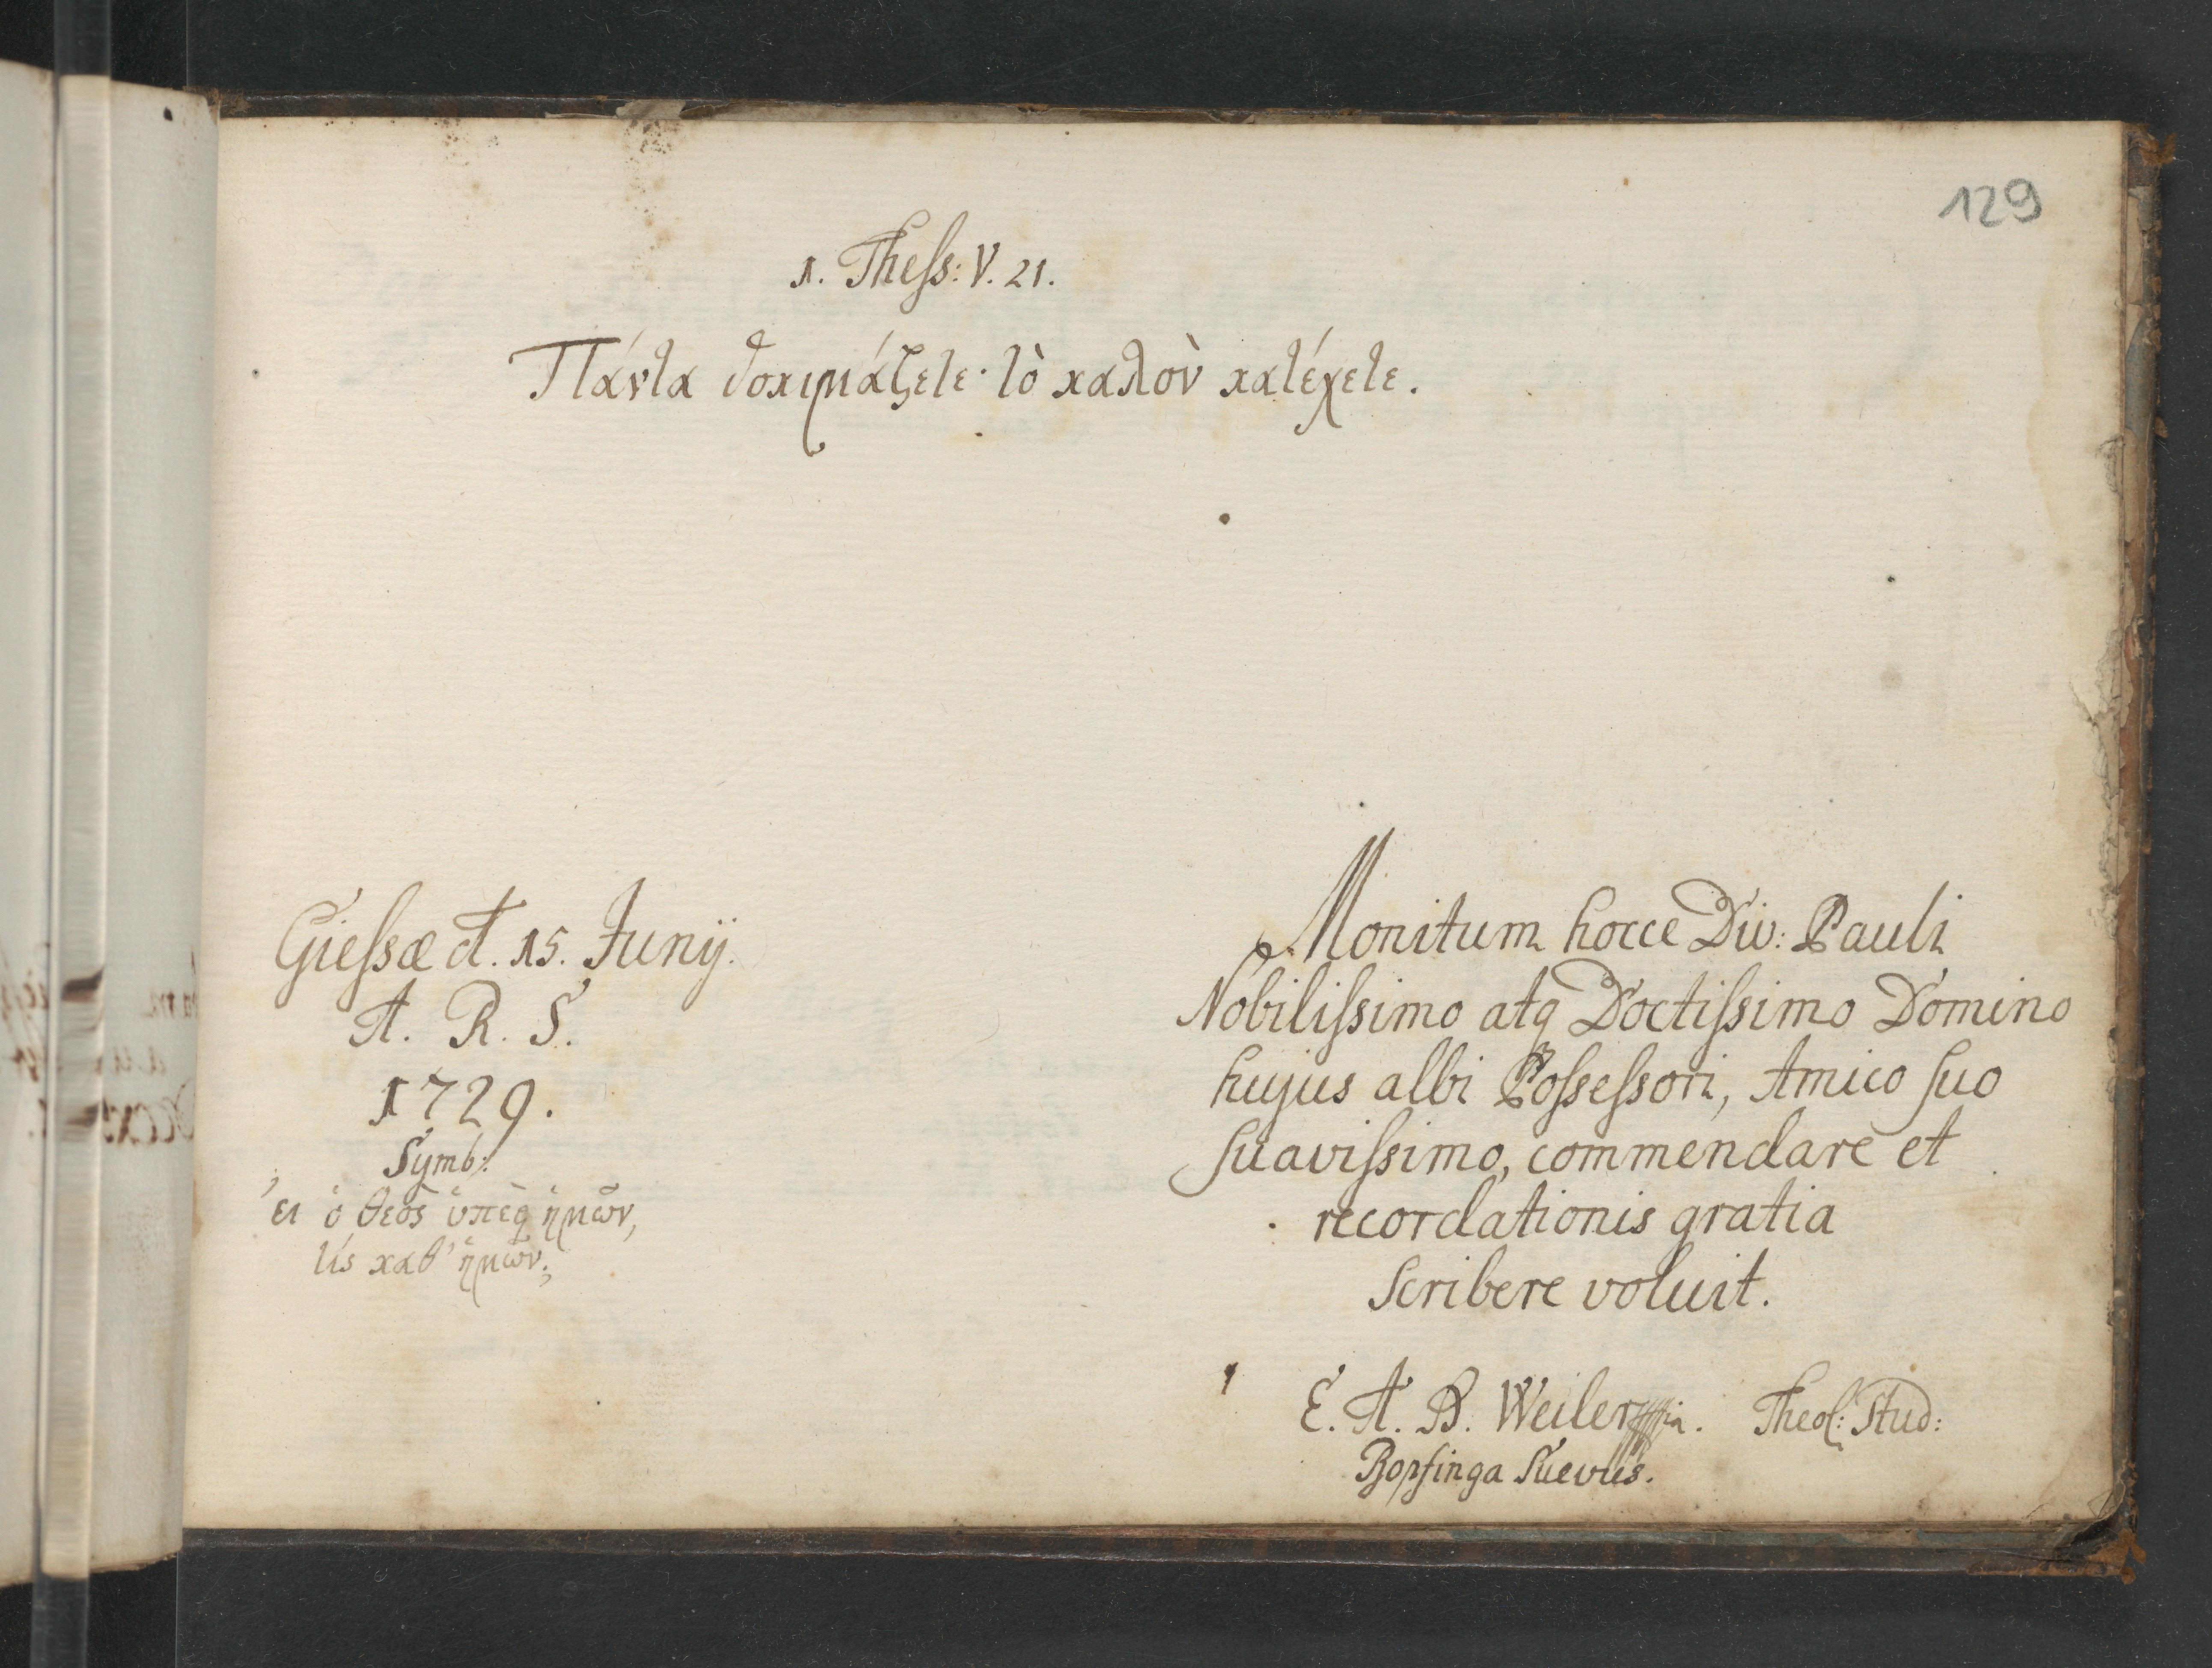 129
1. Thess: V. 21.
Πάντα δοκιμάζετε· τὸ καλὸν κατέχετε.
Giessæ d. 15. Junij.
A. R. S.
1729.
Symb:
ἐι ὁ θεὸς ὑπὲρ ἡμῶν,
τίς καθ' ἡμῶν;
Monitum hocce Div: Pauli
Nobilissimo atq Doctissimo Domino
hujus albi Possessori, Amico suo
suavissimo, commendare et
recordationis gratia
scribere voluit.
E. A. B. Weiler. Theol: Stud:
Bopfinga Suevus.